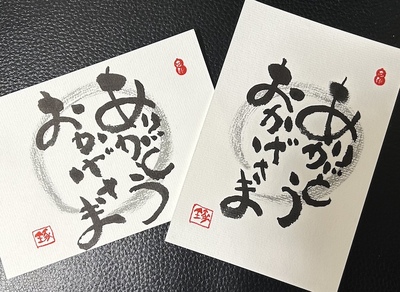 ありがとう
おかげさま
ありがとう
おかげさま